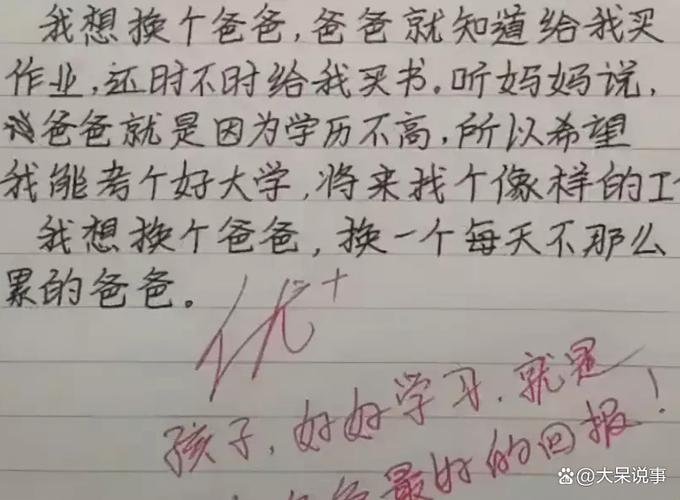 我想换个爸爸,爸爸就知道给我买
作业,还时不时给我买书。听妈妈说,
爸爸就是因为学历不高,所以希望
我能考个好大学,将来找个像样的工
我想换个爸爸,换一个每天不那么
累的爸爸。
优+
孩子,好好学习,就是
爸最好的回报!
@大呆说事